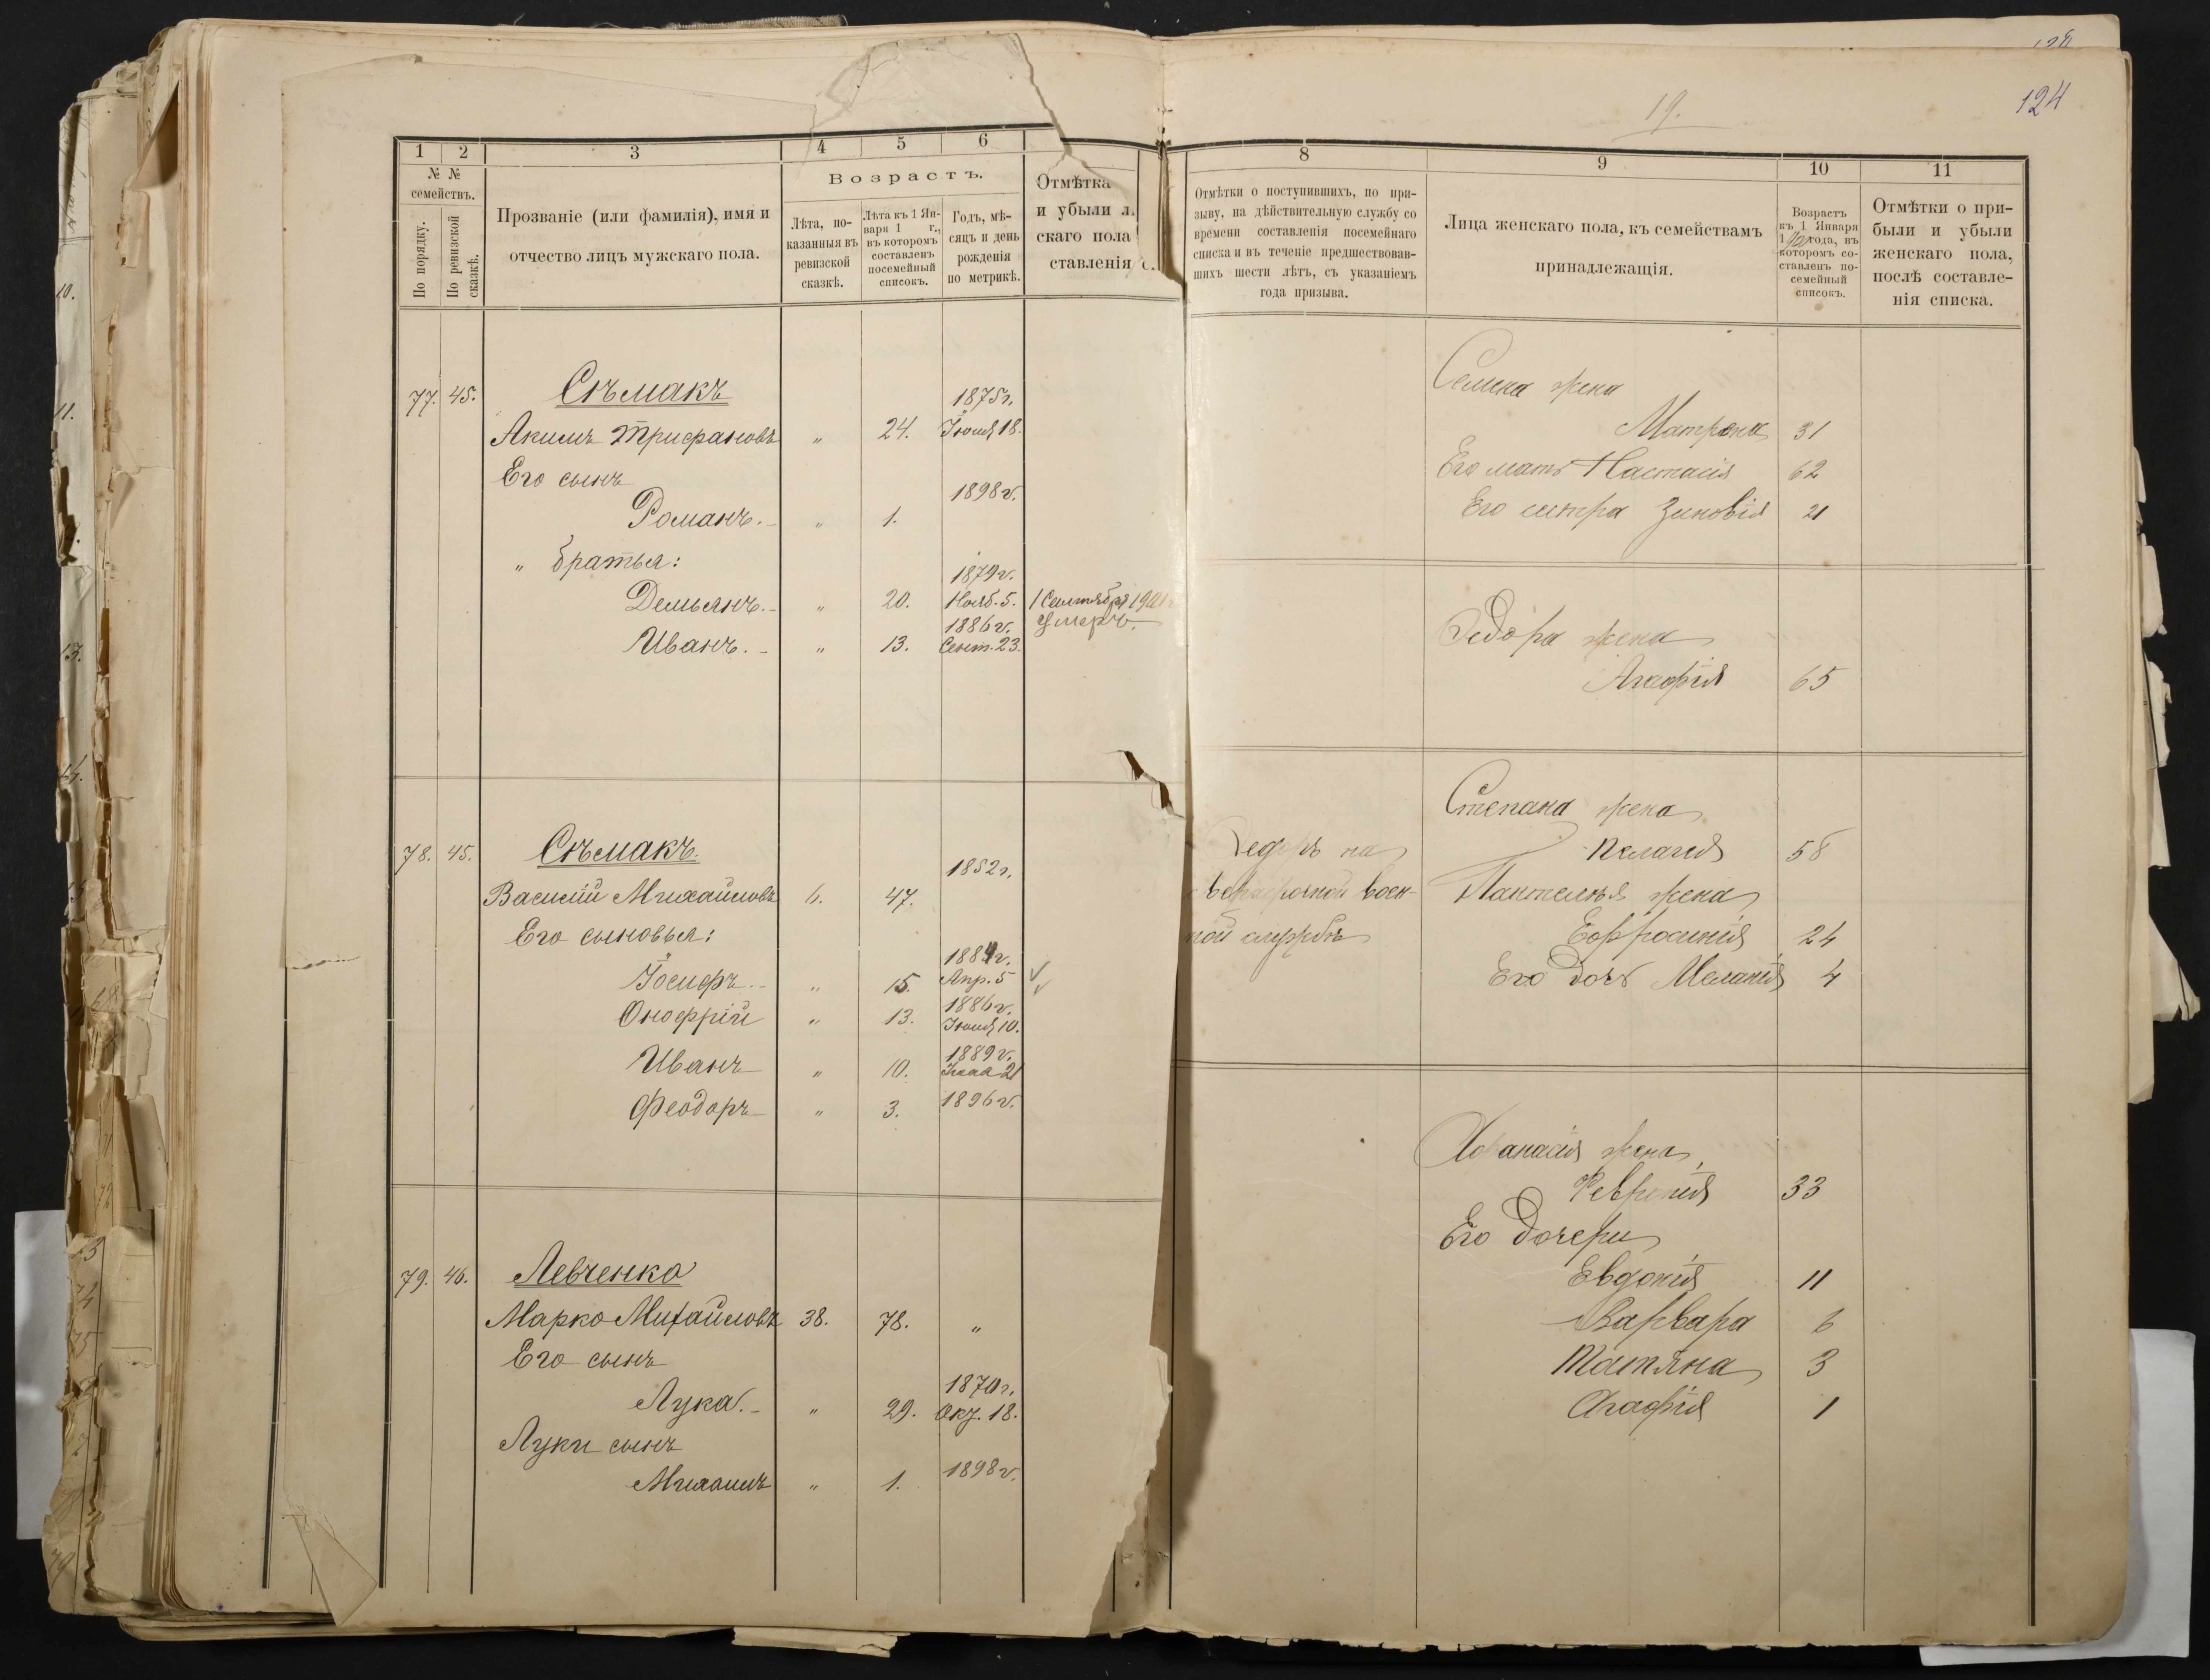 124
19.
1
2
3
4
5
6
№ №
семействъ.
По порядку.
По ревизской
сказкѣ.
Прозваніе (или фамилія), имя и
отчество лицъ мужскаго пола.
Возрастъ.
Лѣта, по-
казанныя въ
ревизской
сказкѣ.
Лѣта къ 1 Ян-
варя 1 г.,
въ которомъ
составленъ
посемейный
списокъ.
Годъ, мѣ-
сяцъ и день
рожденія
по метрикѣ.
Отмѣтка
и убыли л
скаго пола
ставленія с
77. 45. Сѣмакъ
1875г.
Акимъ Трифановъ " 24. Іюля 18.
Его сынъ
1898г.
Романъ. " 1.
" братья:
1879г.
Демьянъ. " 20. Нояб. 5. 1 Сентября 1901
умеръ.
1886г.
Иванъ. " 13. Сент. 23.
78. 45. Сѣмакъ.
1852г.
Василій Михайловъ 6. 47.
Его сыновья:
1884г.
Іосифъ " 15. Апр. 5
1886г.
Онофрій " 13. Іюля 10.
1889г.
Иванъ " 10. 21
Феодоръ " 3. 1896г.
79. 46. Левченко
Марко Михайловъ 38. 78. "
Его сынъ
1870г.
Лука. " 29. Окт. 18.
Луки сынъ
1898г.
Михаилъ " 1.
8
9
10
11
Отмѣтки о поступившихъ, по при-
зыву, на дѣйствительную службу со
времени составленія посемейнаго
списка и въ теченіе предшествовав-
шихъ шести лѣтъ, съ указаніемъ
года призыва.
Лица женскаго пола, къ семействамъ
принадлежащія.
Возрастъ
къ 1 Января
1 года, въ
которомъ со-
ставленъ по-
семейный
списокъ.
Отмѣтки о при-
были и убыли
женскаго пола,
послѣ составле-
нія списка.
Семена жена
Матрона 31
Его мать Настасія 62
Его сестра Зиновія 21
Федора жена
Агафія 65
Степана жена
на Пелагія 58
воен- Пантелѣя жена
ной службѣ Ефросинія 24
Его дочь Меланія 4
Афанасія жена
Февронія 33
Его дочери
Евдокія 11
Варвара 6
Татяна 3
Агафія 1